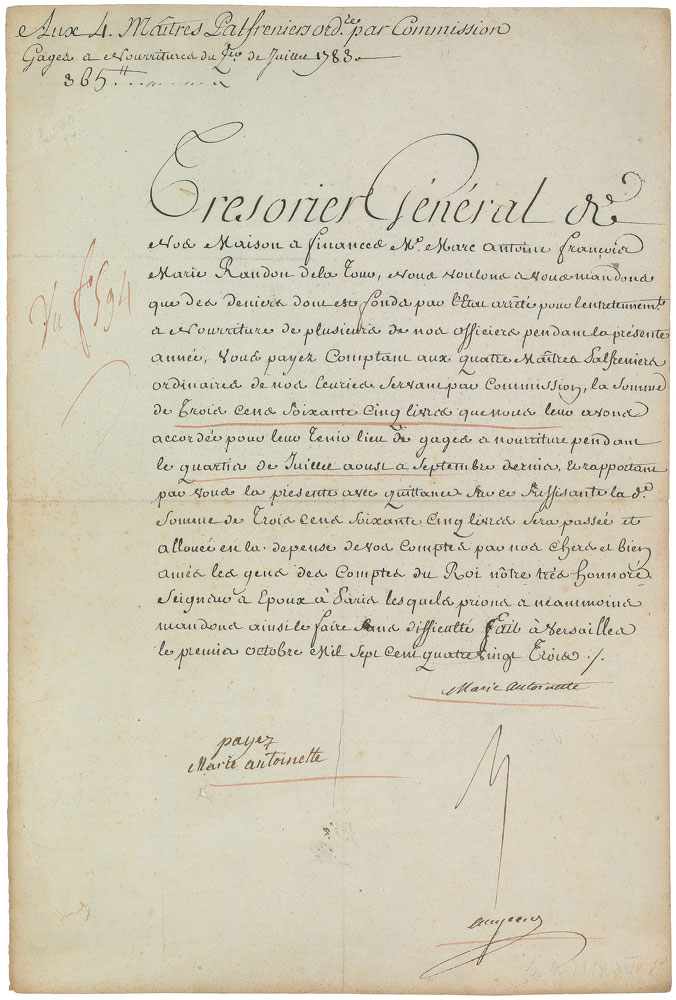 Aux 4. Maîtres Palfreniers ord.res par Commission
Gages & Nourritures du Q.er de Juillet 1783.
365 ₶
Tresorier Général de
Nos Maison & finances M.e Marc Antoine françois
Marie Randon dela Tour, Nous voulons & vous mandons
que des deniers dont est fonds par l'Etat arrêté pour l'entretennem.t
& Nourriture de plusieurs de nos officiers pendant la présente
année, Vous payez Comptant aux quatre Maîtres Palfreniers
ordinaires de nos Ecuries Servant par Commission, la Somme
de Trois Cens Soixante Cinq livres que nous leur avons
accordée pour leur Tenir lieu de gages & nourriture pendant
le quartier de Juillet aoust & Septembre dernier, & rapportant
par vous la présente avec quittance Sur ce Suffisante la d.e
Somme de Trois Cens Soixante Cinq livres Sera passée et
allouée en la depense de vos Comptes par nos Chers et bien
amés les gens des Comptes du Roi nôtre très honnoré
Seigneur & Epoux à Paris lesquels prions & néammoins
mandons ainsi le faire Sans difficulté fait à Versailles
le premier octobre Mil Sept Cent quatre vingt Trois ./.
Marie Antoinette
Vu f.o 594
payez
Marie antoinette
augeard